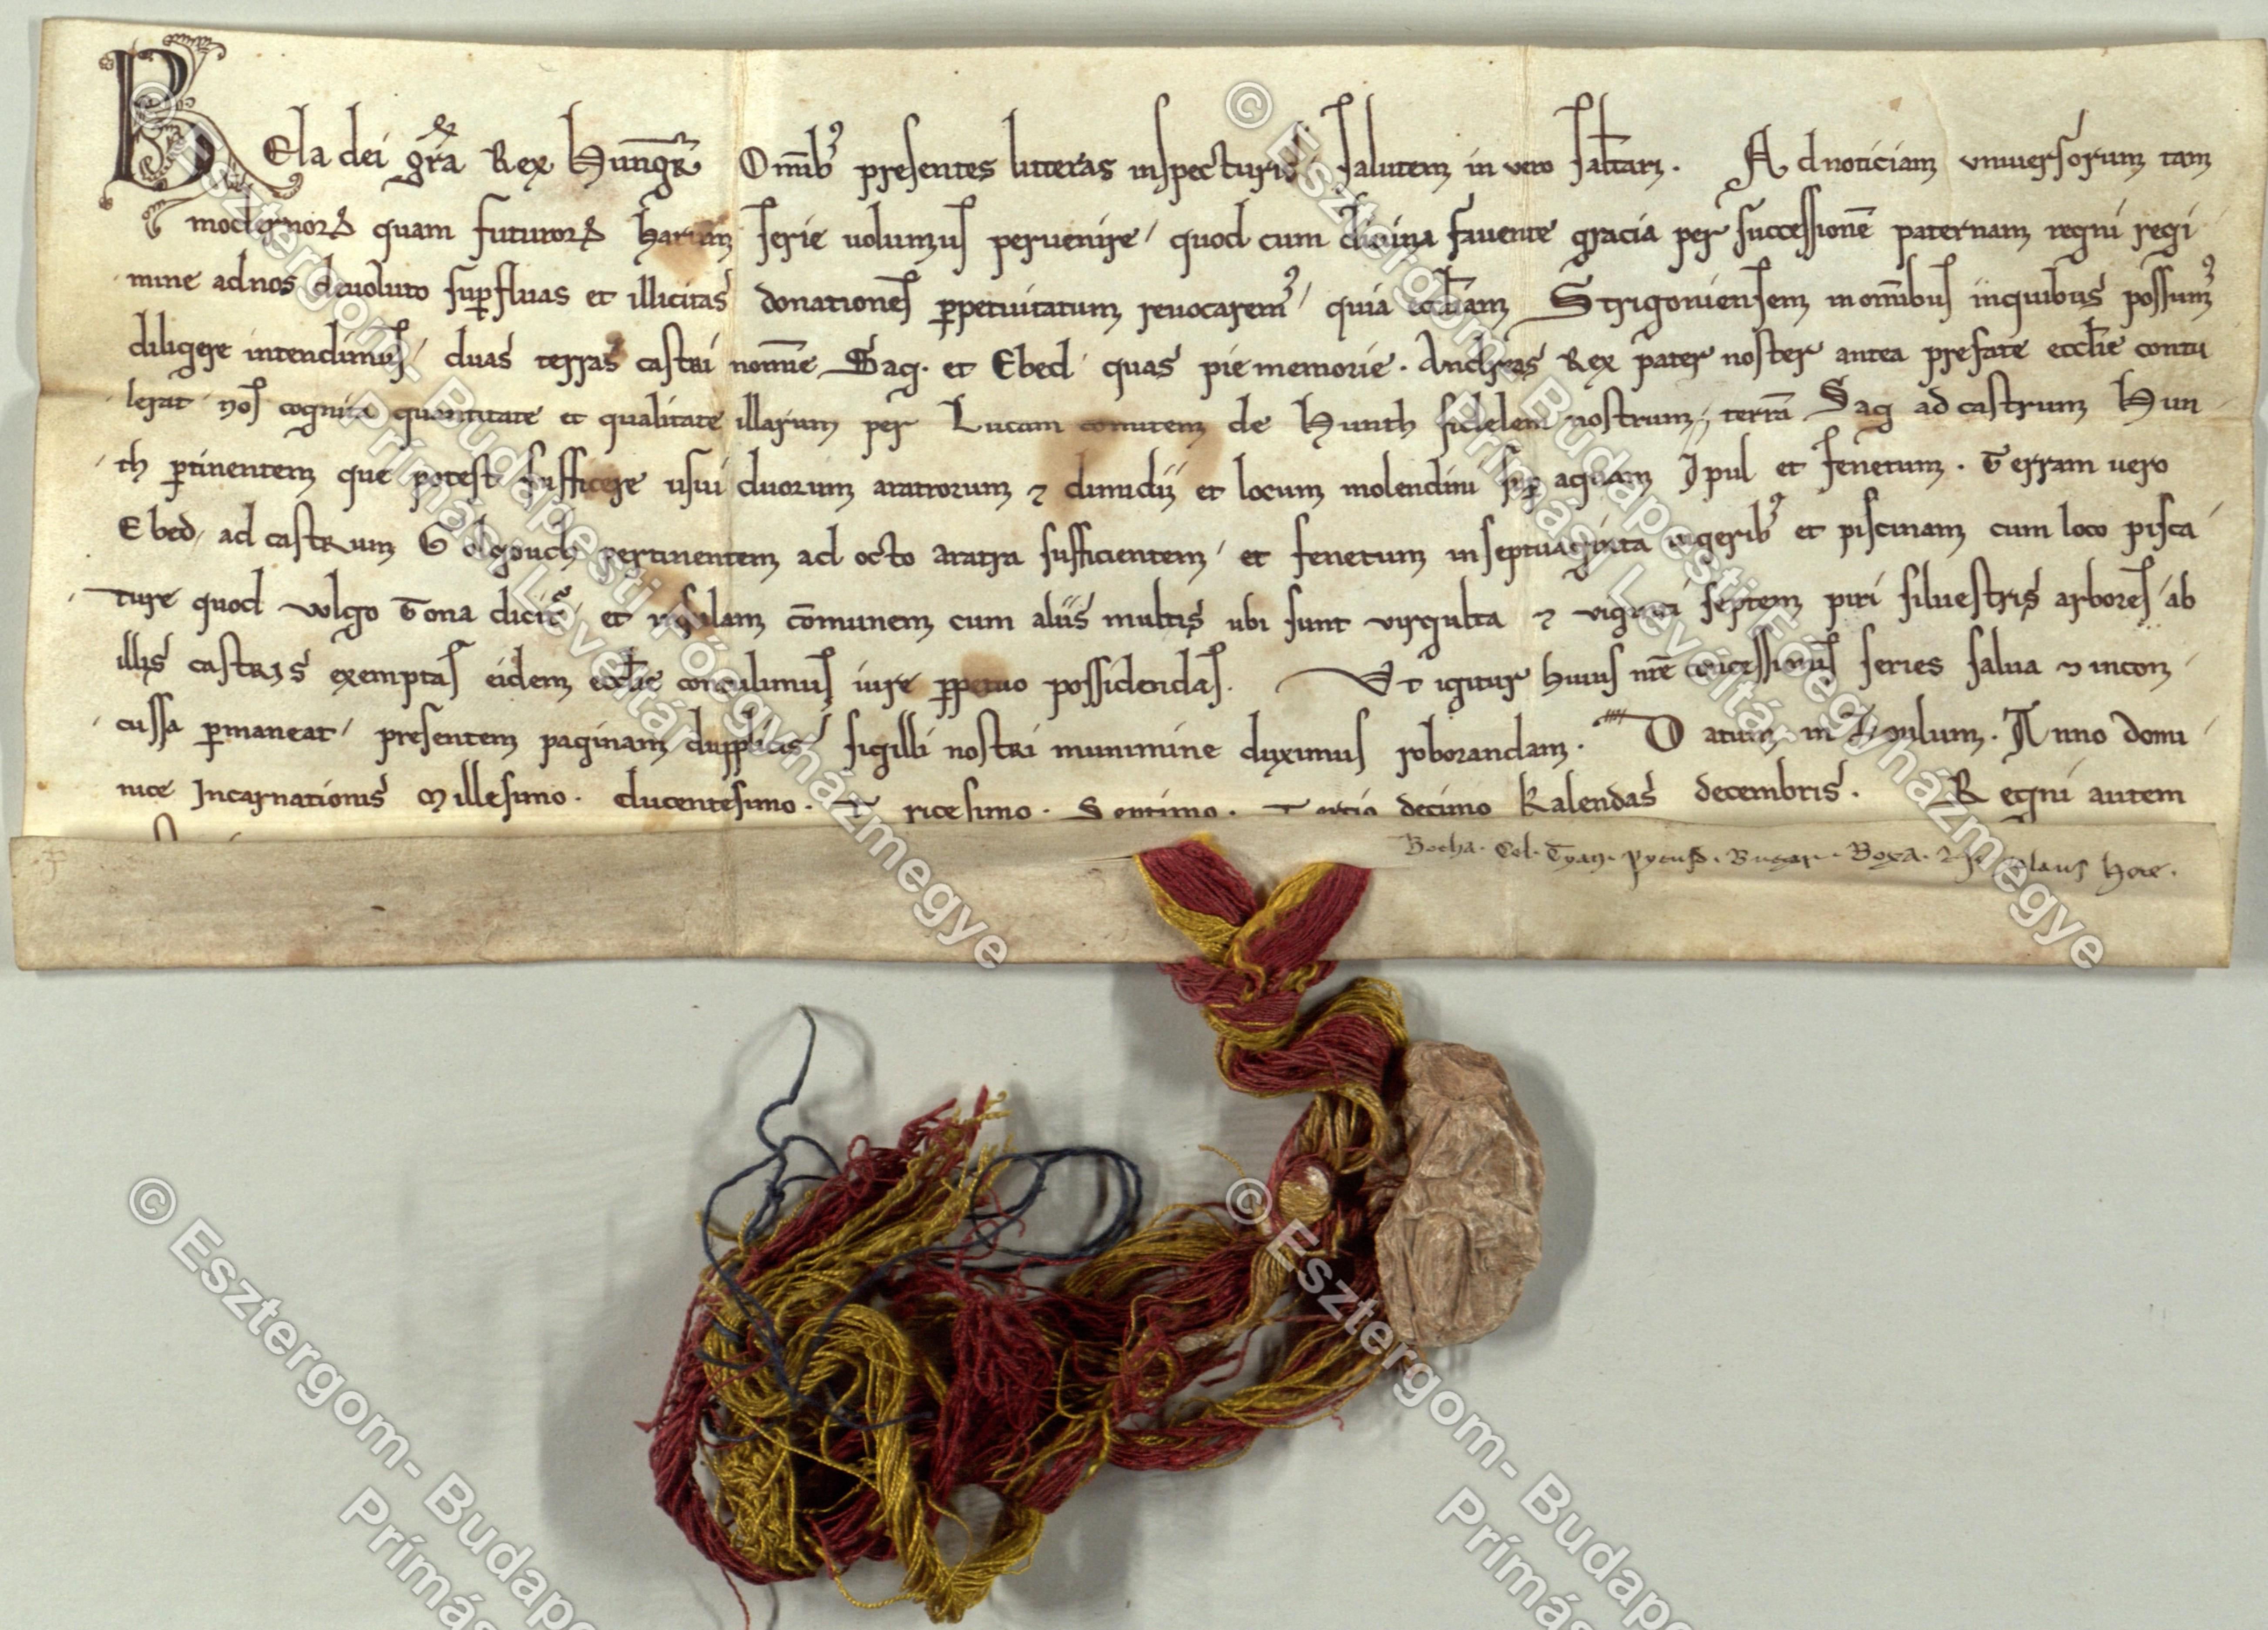 Bela dei gr̄a Rex Hung̅ Om̅ib᷒ presentes litteras inspecturis salutem in vero salutari. Ad noticiam vniuersorum tam
modernorꝝ quam futurorꝝ harum serie uolumus peruenire, quod cum diuina fauente gracia per successionē paternam regni regi
mine ad nos deuoluto sup̱fluas et illicitas donationes p̱petuitatum reuocarem᷒, quia eccl̄iam Strigoniensem in om̅ibus inquibus possum᷒
diligere intendimus, duas terras castri nomīne Sag. et Ebed quas pie memorie. Andreas Rex pater noster antea prefate eccl̄ie contu
lerat nos cognita quantitate et qualitate illarum per Lucam comitem de Hunth fidelem nostrum, terrā Sag ad castrum Hun
th p̱tinentem que potest sufficere usui duorum aratrorum ⁊ dimidij et locum molendini sup̱ aquam Ipul et fenetum. Terram uero
Ebed, ad castrum Golgouch pertinentem ad octo aratra sufficientem, et fenetum in septuaginta iugerib᷒ et piscinam cum loco pisca
ture quod volgo Tona dicit᷒ et insulam cōmunem cum aliis multis ubi sunt virgulta ⁊ viginti septem piri siluestris arbores, ab
illis castris exemptas eidem eccl̄ie contulimus iure p̱petuo possidendas. Vt igitur huius nr̄e concessionis series salua ⁊ incon
cussa p̱maneat, presentem paginam dupplicis sigilli nostri munimine duximus roborandam. Datum in Anno domi
nice Incarnationis Millesimo. ducentesimo. Tricesimo. Septimo. Tertio decimo Kalendas decembris. Regni autem
Bocha. Col. Tyan. Bugar. Boxa. Nycolaus
© Esztergom- Budapesti Főegyházmegye
Prímási Levéltár
© Esztergom- Budapesti Főegyházmegye
Prímási Levéltár
© Esztergom- Budape
Prímás
© Esztergom- Budape
Prímás